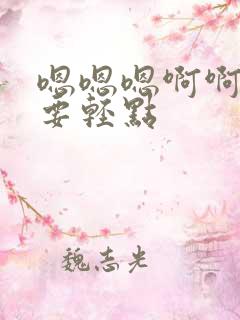 嗯嗯嗯啊啊
要轻點
魏志光